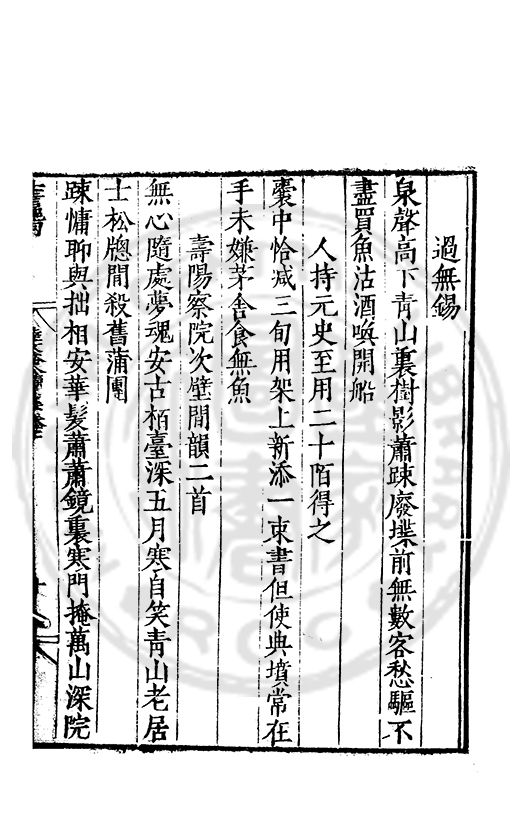 過無錫
泉聲高下青山裏樹影蕭踈廢堞前無數客愁驅不
盡買魚沽酒喚開船
人持元史至用二十陌得之
囊中恰减三旬用架上新添一束書但使典墳常在
手未嫌茅舍食無魚
壽陽察院次壁間韻二首
無心隨處夢魂安古栢臺深五月寒自笑青山老居
士松牕閒殺舊蒲團
踈慵聊與拙相安華髮蕭蕭鏡裏寒門掩萬山深院